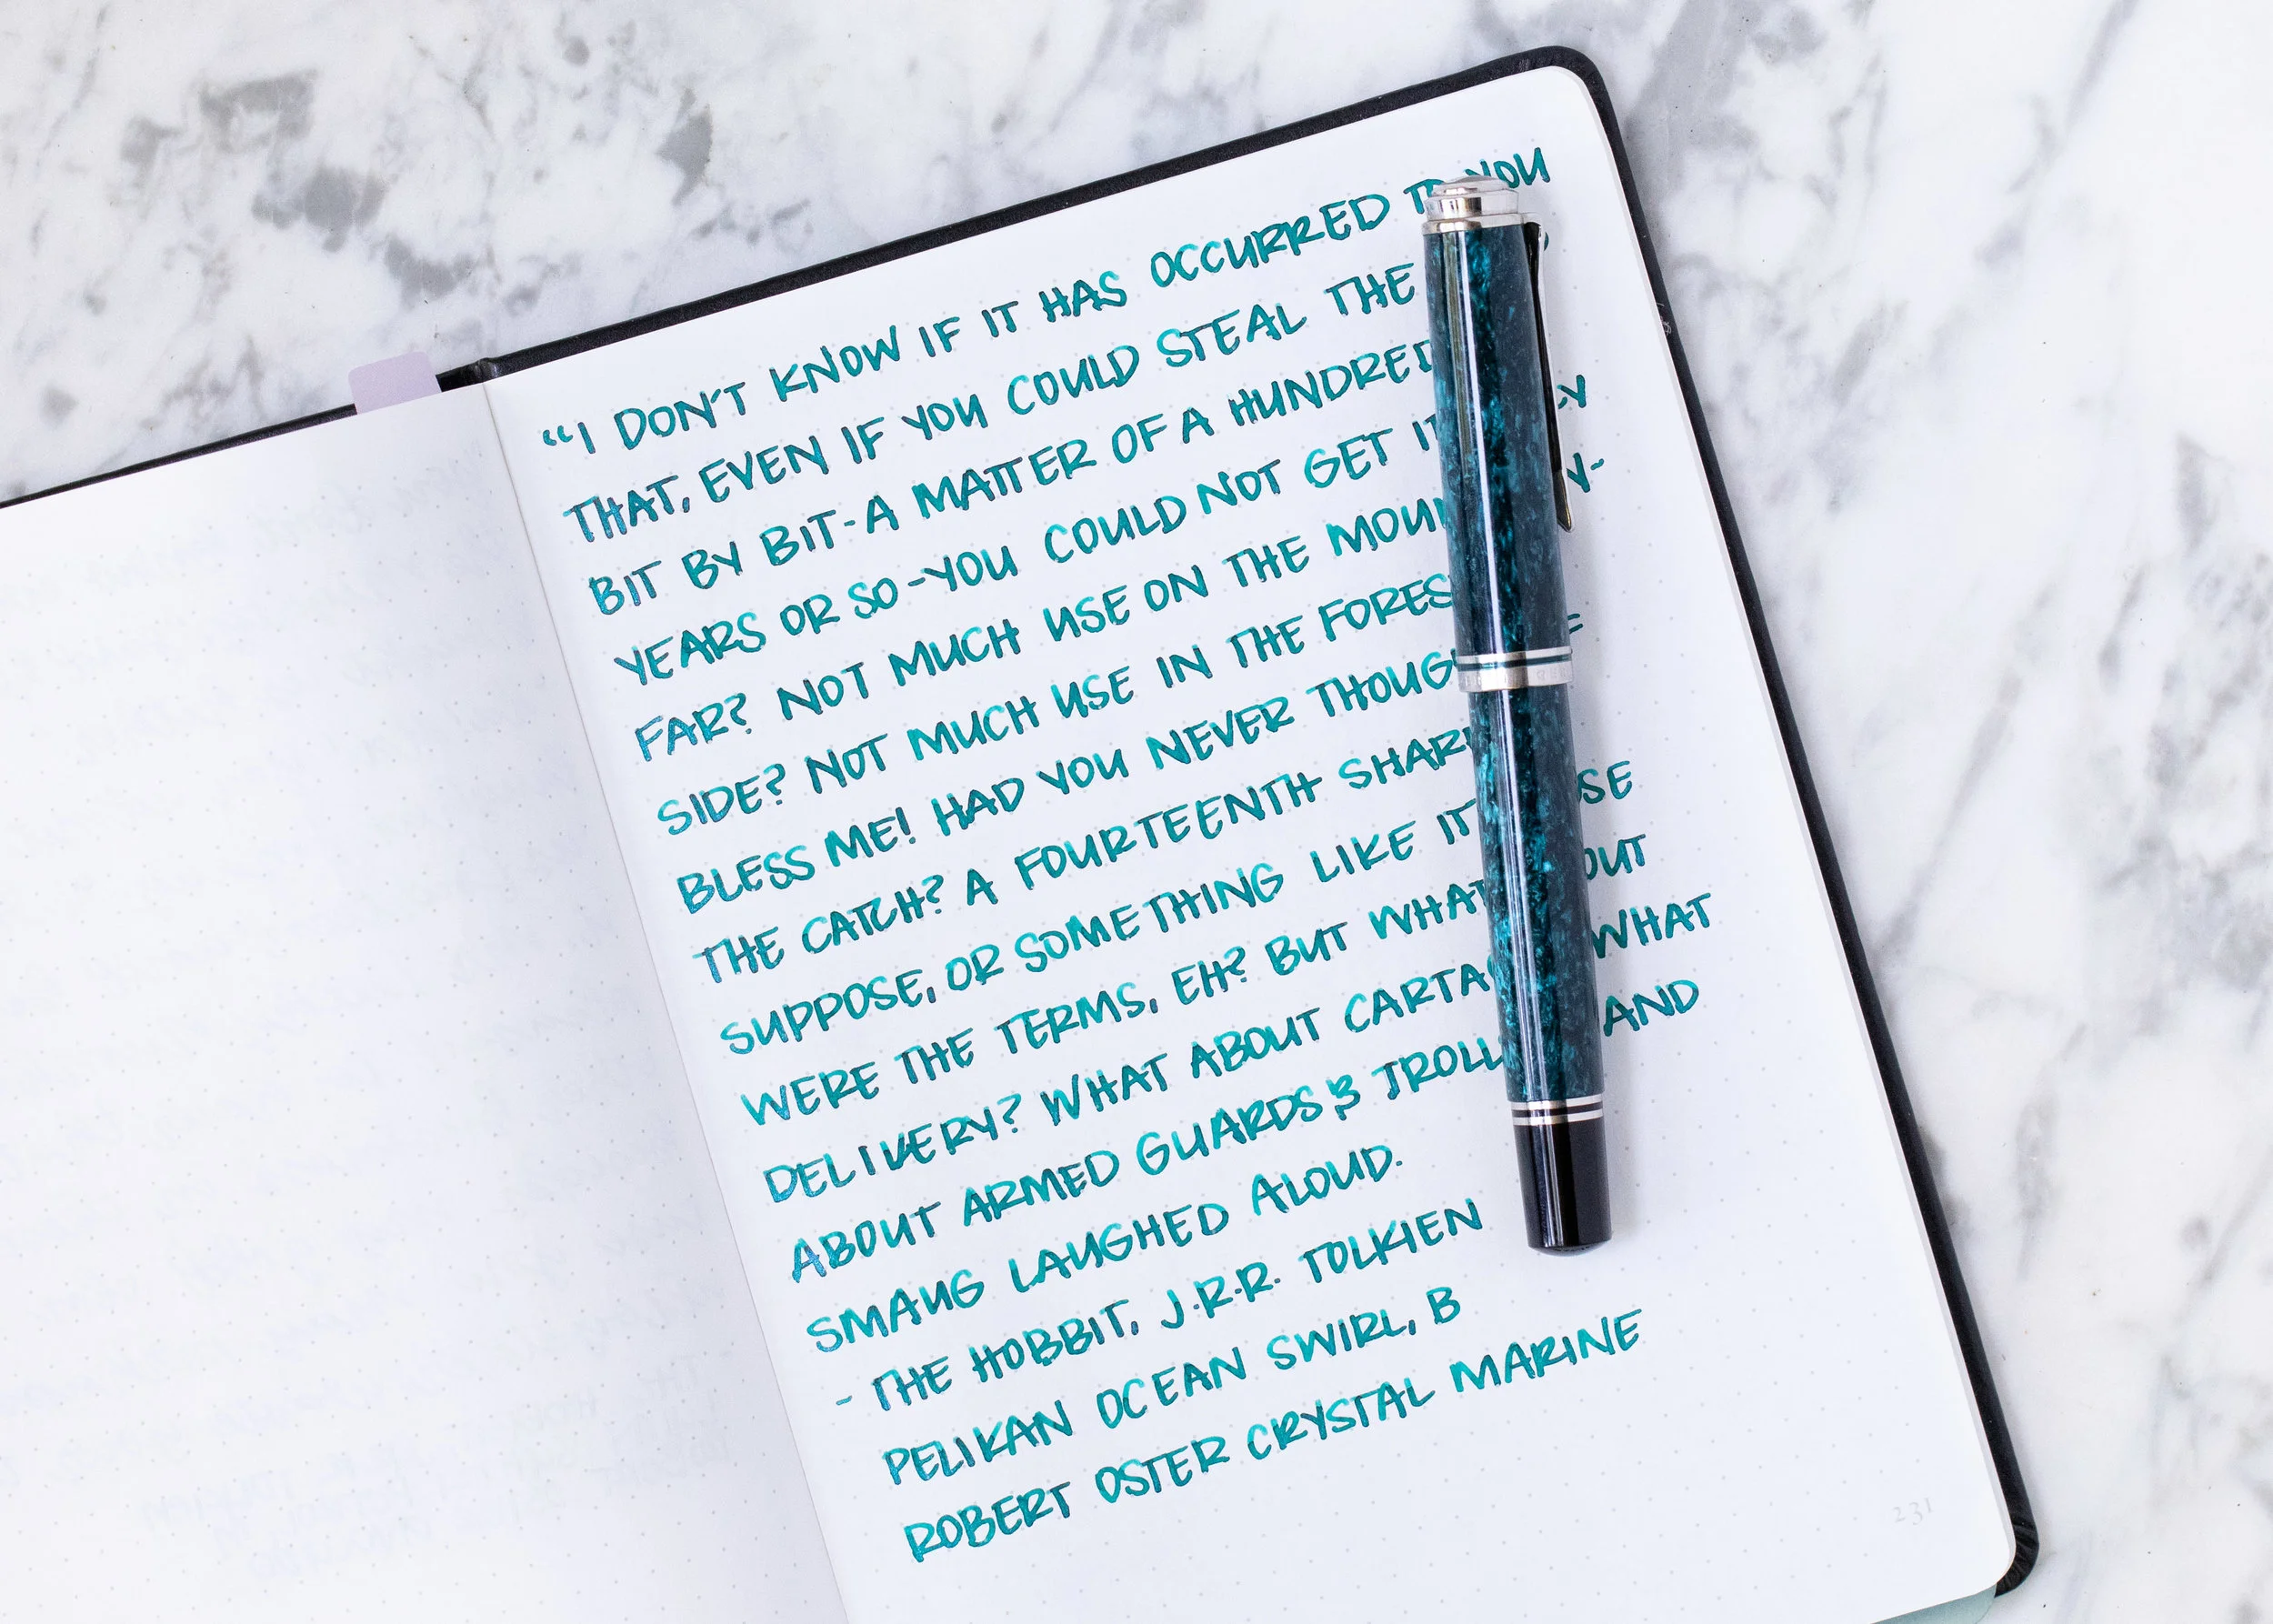 “I DON'T KNOW IF IT HAS OCCURRED TO YOU
THAT, EVEN IF YOU COULD STEAL THE
BIT BY BIT-A MATTER OF A HUNDRED
YEARS OR SO-YOU COULD NOT GET IT
FAR? NOT MUCH USE ON THE
SIDE? NOT MUCH USE IN THE
BLESS ME! HAD YOU NEVER
THE CATCH? A FOURTEENTH
SUPPOSE, OR SOMETHING LIKE IT
WERE THE TERMS, EH? BUT WHAT
DELIVERY? WHAT ABOUT WHAT
ABOUT ARMED GUARDS & AND
SMAUG LAUGHED ALOUD.
- THE HOBBIT, J.R.R. TOLKIEN
PELIKAN OCEAN SWIRL, B
ROBERT OSTER CRYSTAL MARINE
231